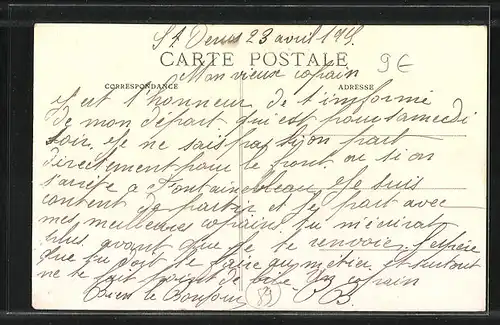 St Denis 23 avril 191
9€
CARTE POSTALE
Mon vieux copain
CORRESPONDANCE
ADRESSE
est l'honneur de t'informé
de mon départ qui est pour samedi
soir. Je ne sais pas si on part
directement pour le front ou si on
s'arrête à Fontainebleau, Je suis
content de partir et je part avec
mes meilleures copains tu m'écrirat
plus avant que je te renvoie. J'espère
que tu doit te faire au métier et surtout
ne te fait point de bile. Un copain
Bien le Bonjour
89